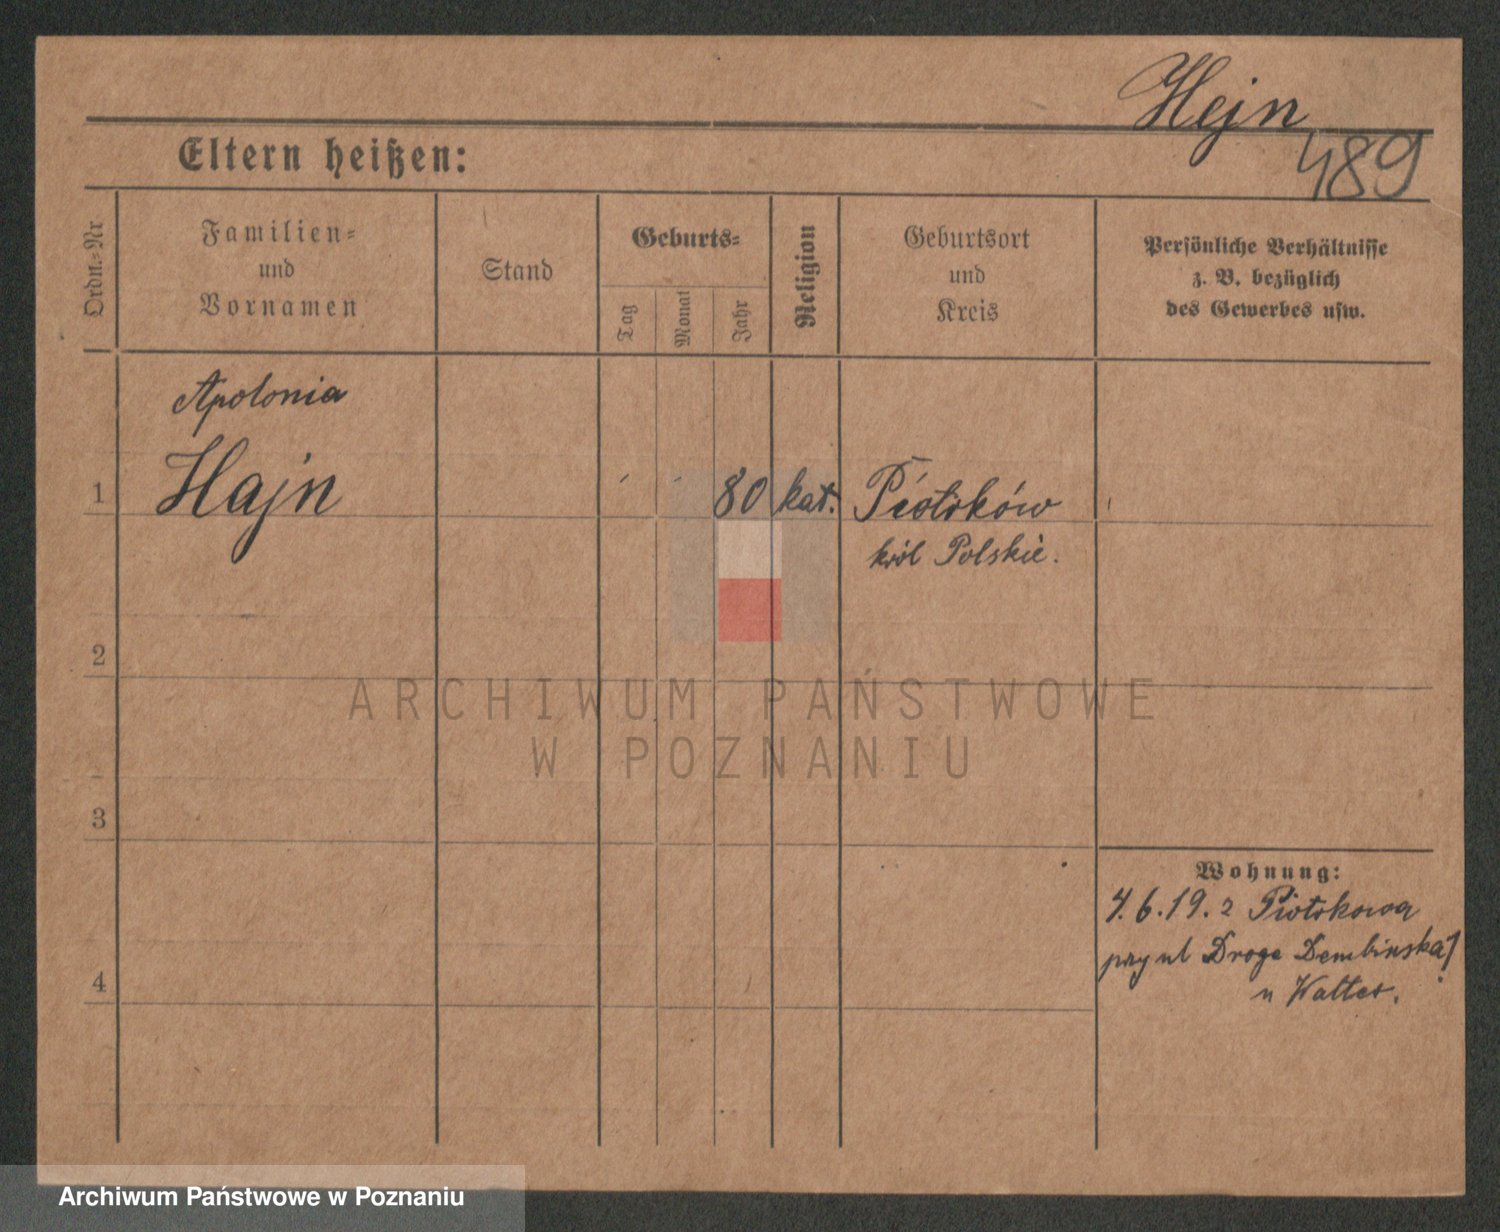 Hejn
489
Eltern heißen:
Ordn.-Nr
Familien-
und
Vornamen
Stand
Geburts-
Tag
Monat
Jahr
Religion
Geburtsort
und
Kreis
Persönliche Verhältnisse
z. B. bezüglich
des Gewerbes usw.
Apolonia
1 Hajn 80 kat. Piotrków
król Polskie.
2
ARCHIWUM PAŃSTWOWE
W POZNANIU
3
Wohnung:
4.6.19. z Piotrkowa
przy ul Droga Dembinska
4
u Walter.
Archiwum Państwowe w Poznaniu